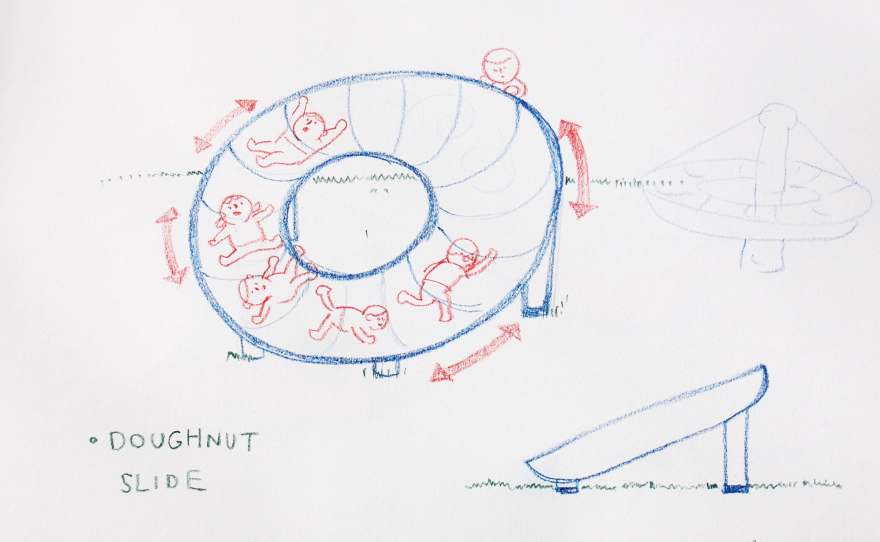 • DOUGHNUT
SLIDE